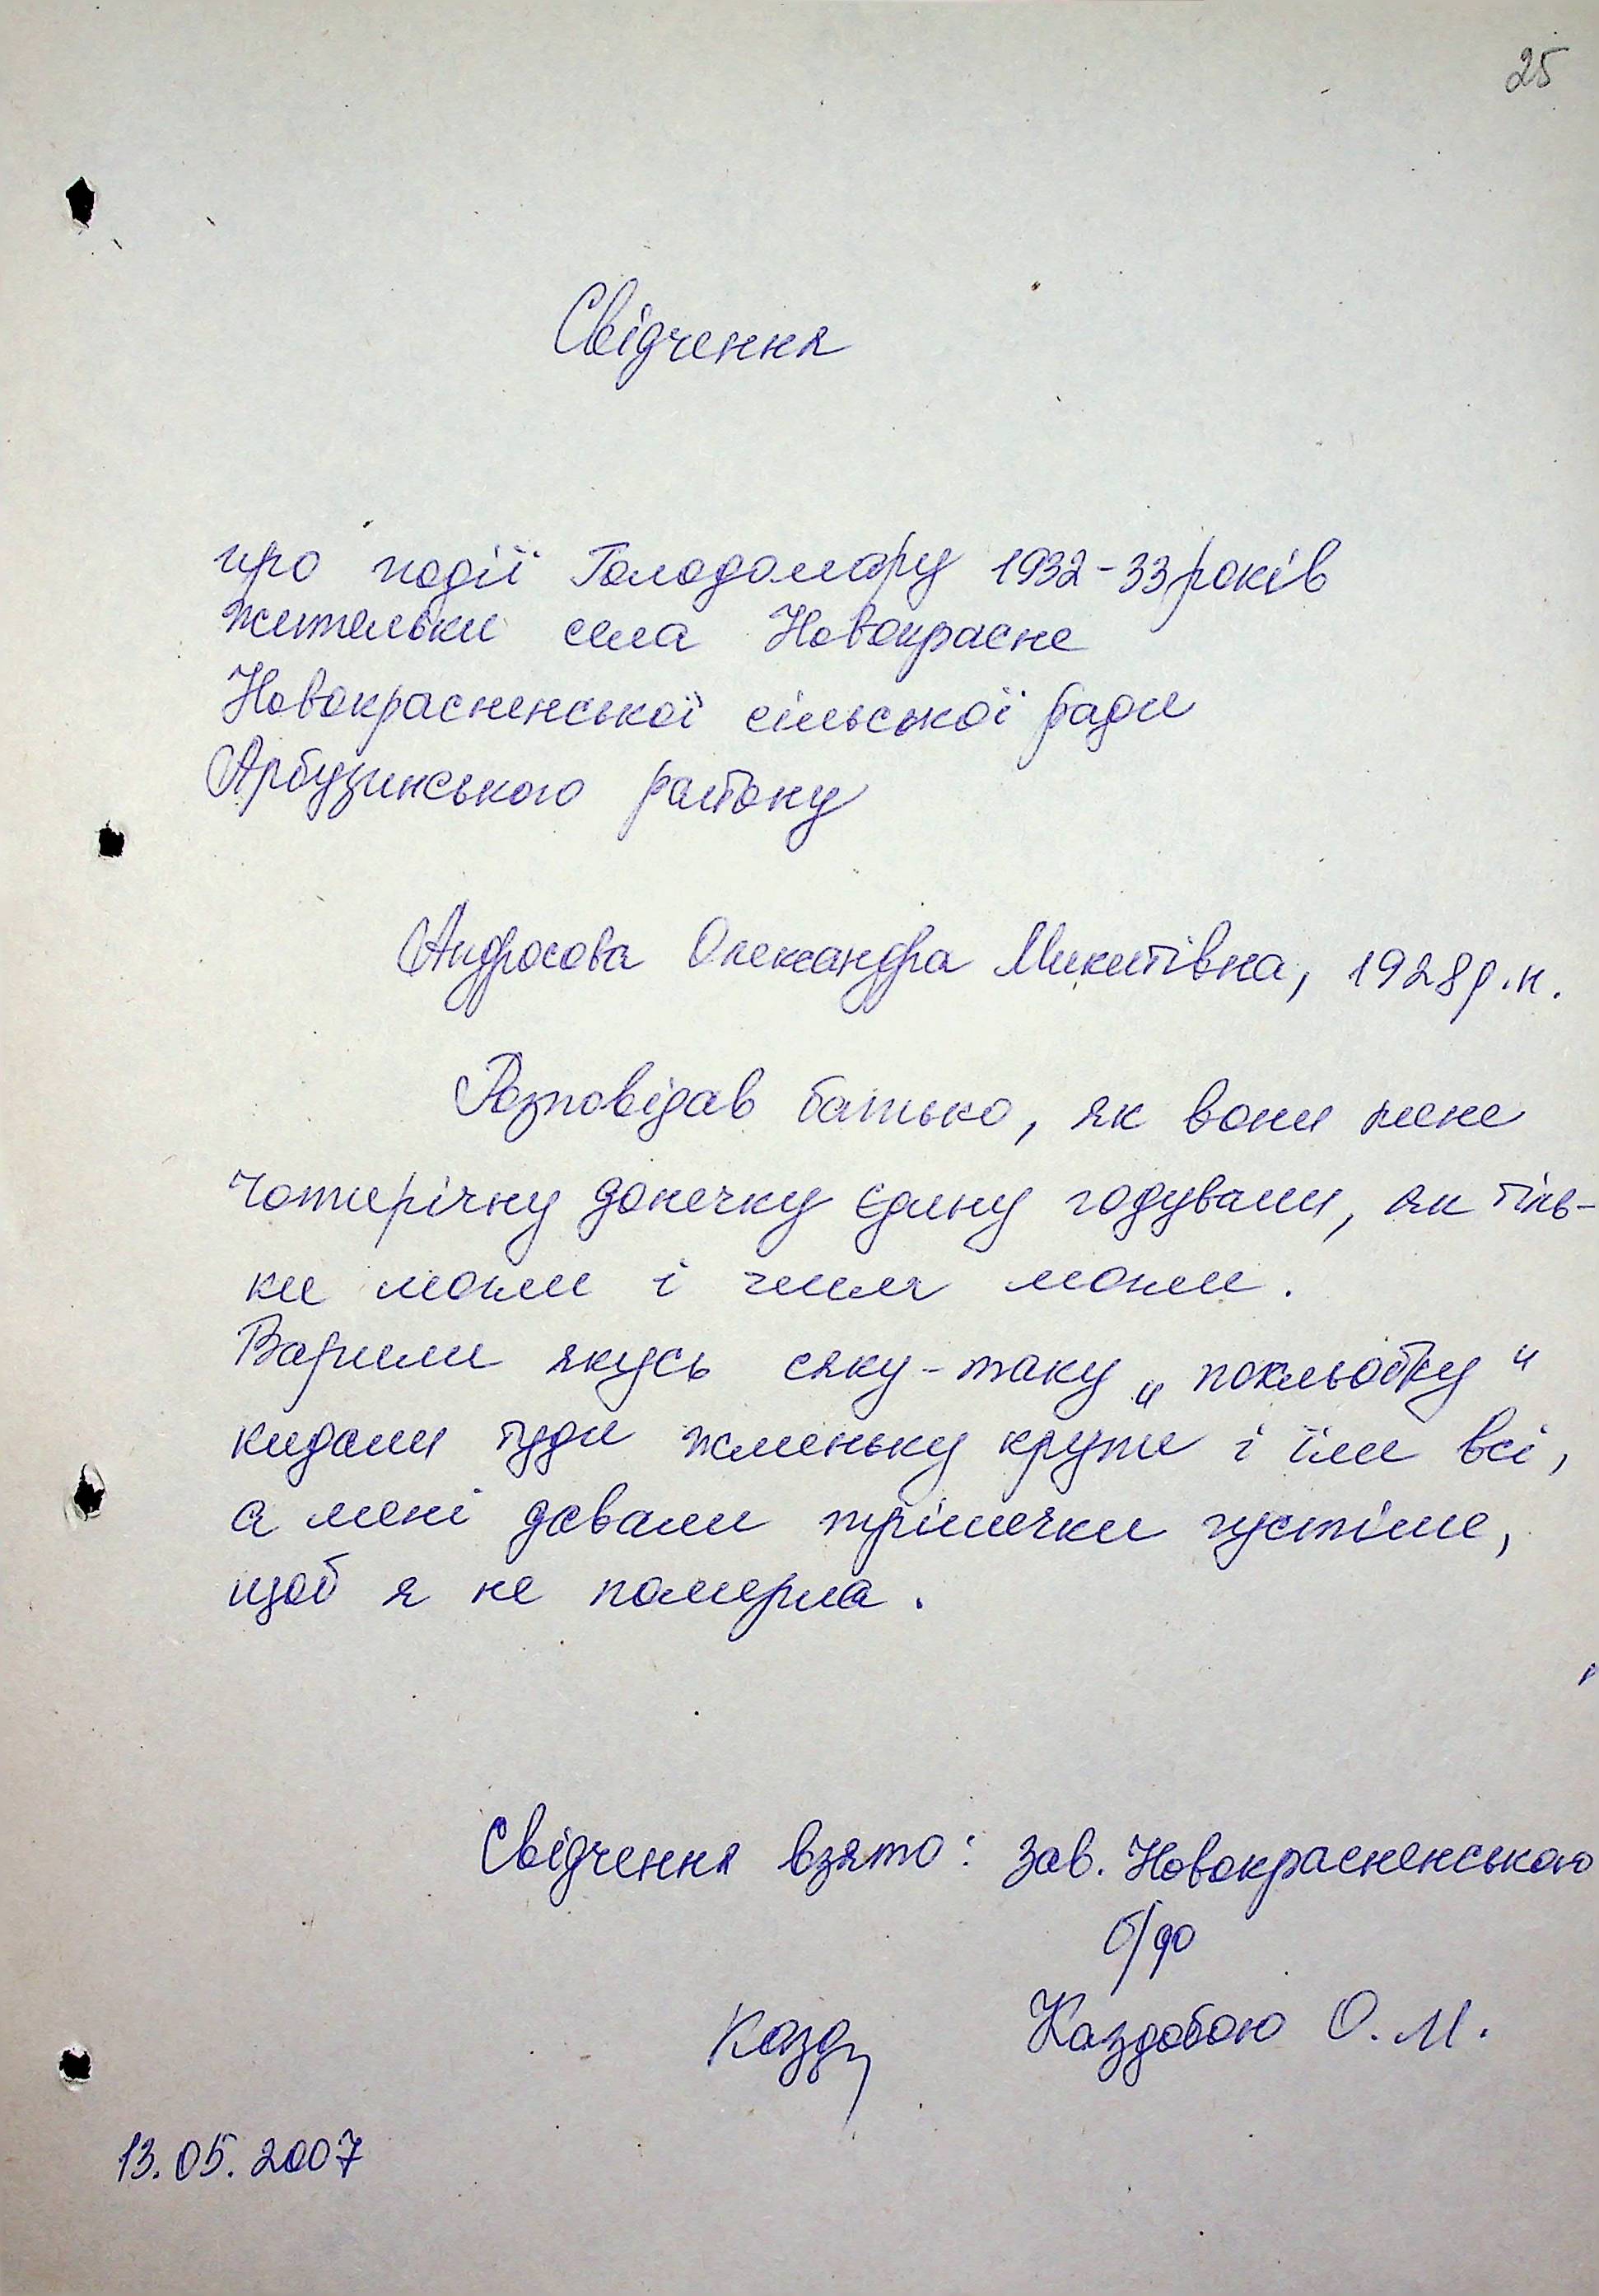 25
Свідчення
про події Голодомору 1932-33 років
жительки села Новокрасне
Новокрасненської сільської ради
Арбузинського району
Андросова Олександра Микитівна, 1928 р.н.
Розповідав батько, як вони мене
чотирічну донечку єдину годували, як тіль-
ки могли і чим могли.
Варили якусь сяку-таку „покльобку“
кидали туди жменьку крупи і їли всі,
а мені давали трішечки густіше,
щоб я не померла.
Свідчення взято: зав. Новокрасненського
б/ф
Каздобою О. М.
13.05.2007